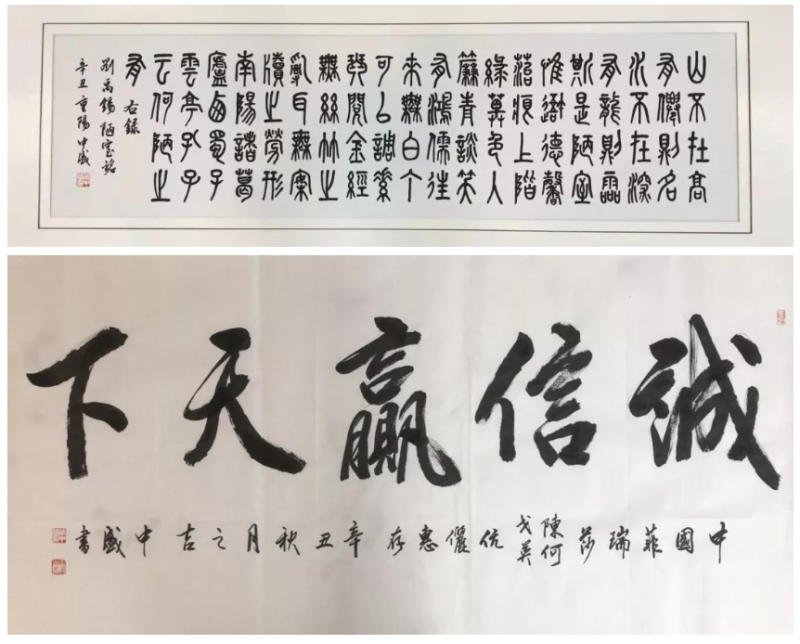 山不在高
有僊則名
水不在深
有龍則靈
斯是陋室
惟吾德馨
苔痕上階
綠草色入
簾青談笑
有鴻儒往
來無白丁
可以調素
琴閱金經
無絲竹之
亂耳無案
牘之勞形
南陽諸葛
廬西蜀子
雲亭孔子
云何陋之
有
右錄
劉禹錫陋室銘
辛丑重陽中盛
誠信贏天下
中國菲瑞莎陳何戈英伉儷惠存辛丑秋月之吉中盛書